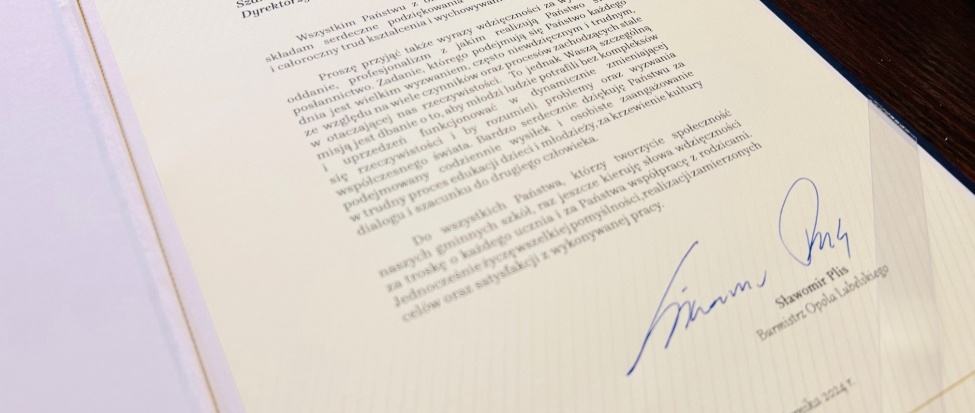 Dyrektorz
Wszystkim Państwu z o
składam serdeczne podziękowania
i całoroczny trud kształcenia i wychowywan
Proszę przyjąć także wyrazy wdzięczności za w
oddanie, profesjonalizm z jakim realizują Państwo s
posłannictwo. Zadanie, którego podejmują się Państwo każdego
dnia jest wielkim wyzwaniem, często niewdzięcznym i trudnym,
ze względu na wiele czynników oraz procesów zachodzących stale
w otaczającej nas rzeczywistości. To jednak Waszą szczególną
misją jest dbanie o to, aby młodzi ludzie potrafili bez kompleksów
i uprzedzeń funkcjonować w dynamicznie zmieniającej
się rzeczywistości i by rozumieli problemy oraz wyzwania
współczesnego świata. Bardzo serdecznie dziękuję Państwu za
podejmowany codziennie wysiłek i osobiste zaangażowanie
w trudny proces edukacji dzieci i młodzieży, za krzewienie kultury
dialogu i szacunku do drugiego człowieka.
Do wszystkich Państwa, którzy tworzycie społeczność
naszych gminnych szkół, raz jeszcze kieruję słowa wdzięczności
za troskę o każdego ucznia i za Państwa współpracę z rodzicami.
Jednocześnie życzę wszelkiej pomyślności, realizacji zamierzonych
celów oraz satysfakcji z wykonywanej pracy.
Sławomir Plis
Burmistrz Opola Lubelskiego
2024 r.